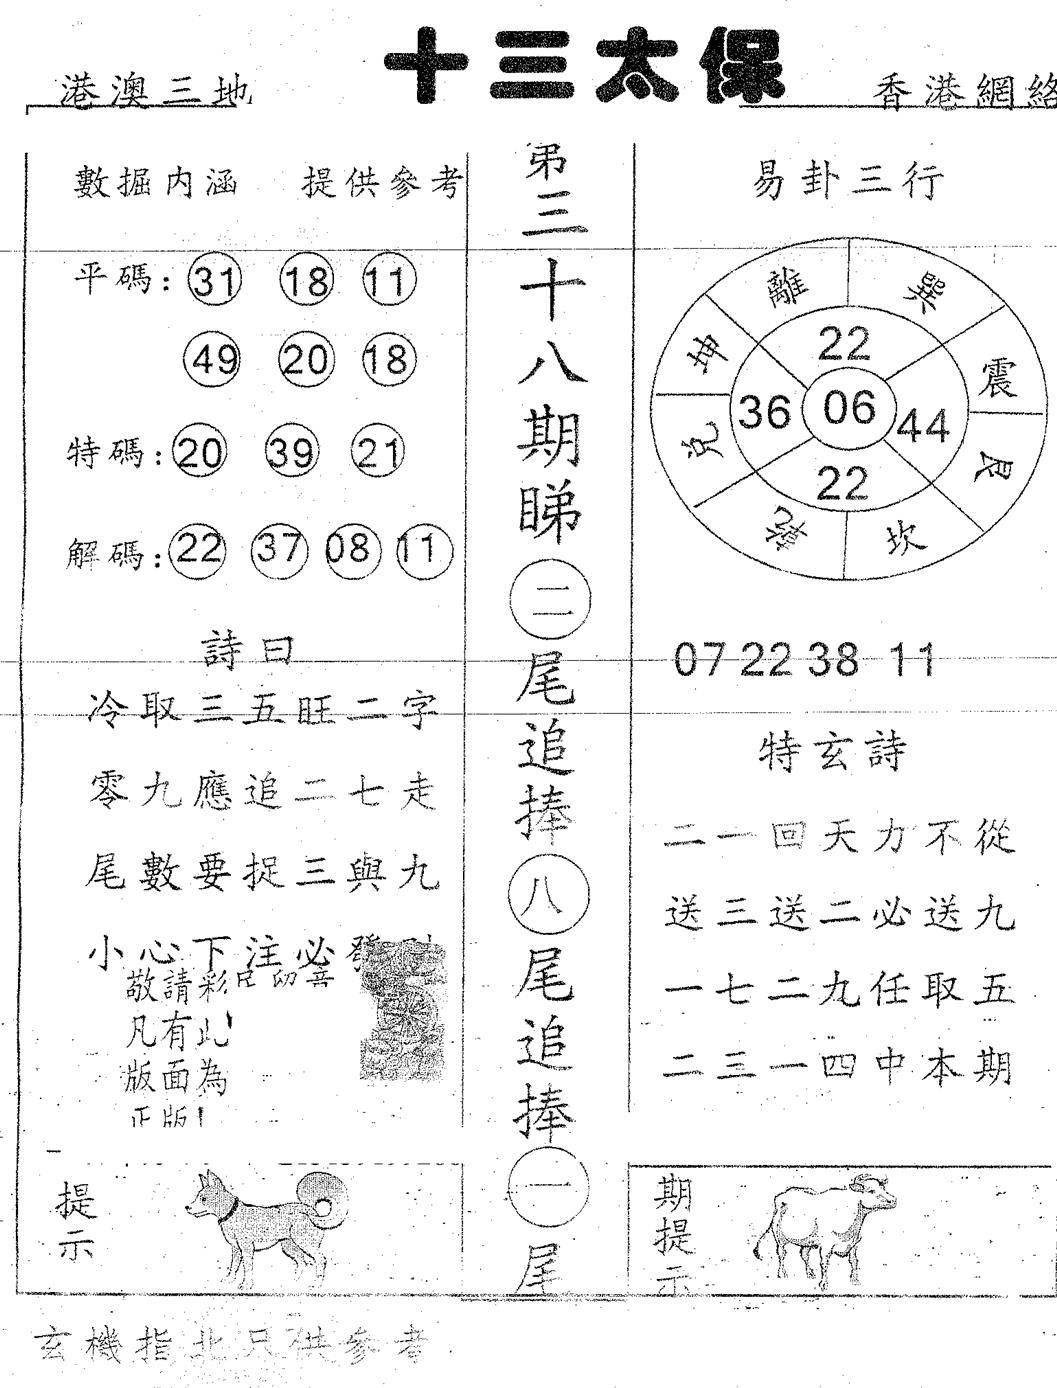 十三太保
港澳三地
香港網絡
數掘内涵 提供參考
平碼: 31 18 11
49 20 18
特碼: 20 39 21
解碼: 22 37 08 11
詩曰
冷取三五旺二字
零九應追二七走
尾數要捉三與九
小心下注必發
敬請彩民留意
凡有此
版面為
正版!
提示
第三十八期睇二尾追捧八尾追捧一尾
易卦三行
離 巽
坤 震
兌 艮
乾 坎
22
36 06 44
22
07 22 38 11
特玄詩
二一回天力不從
送三送二必送九
一七二九任取五
二三一四中本期
期提示
玄機指北只供參考